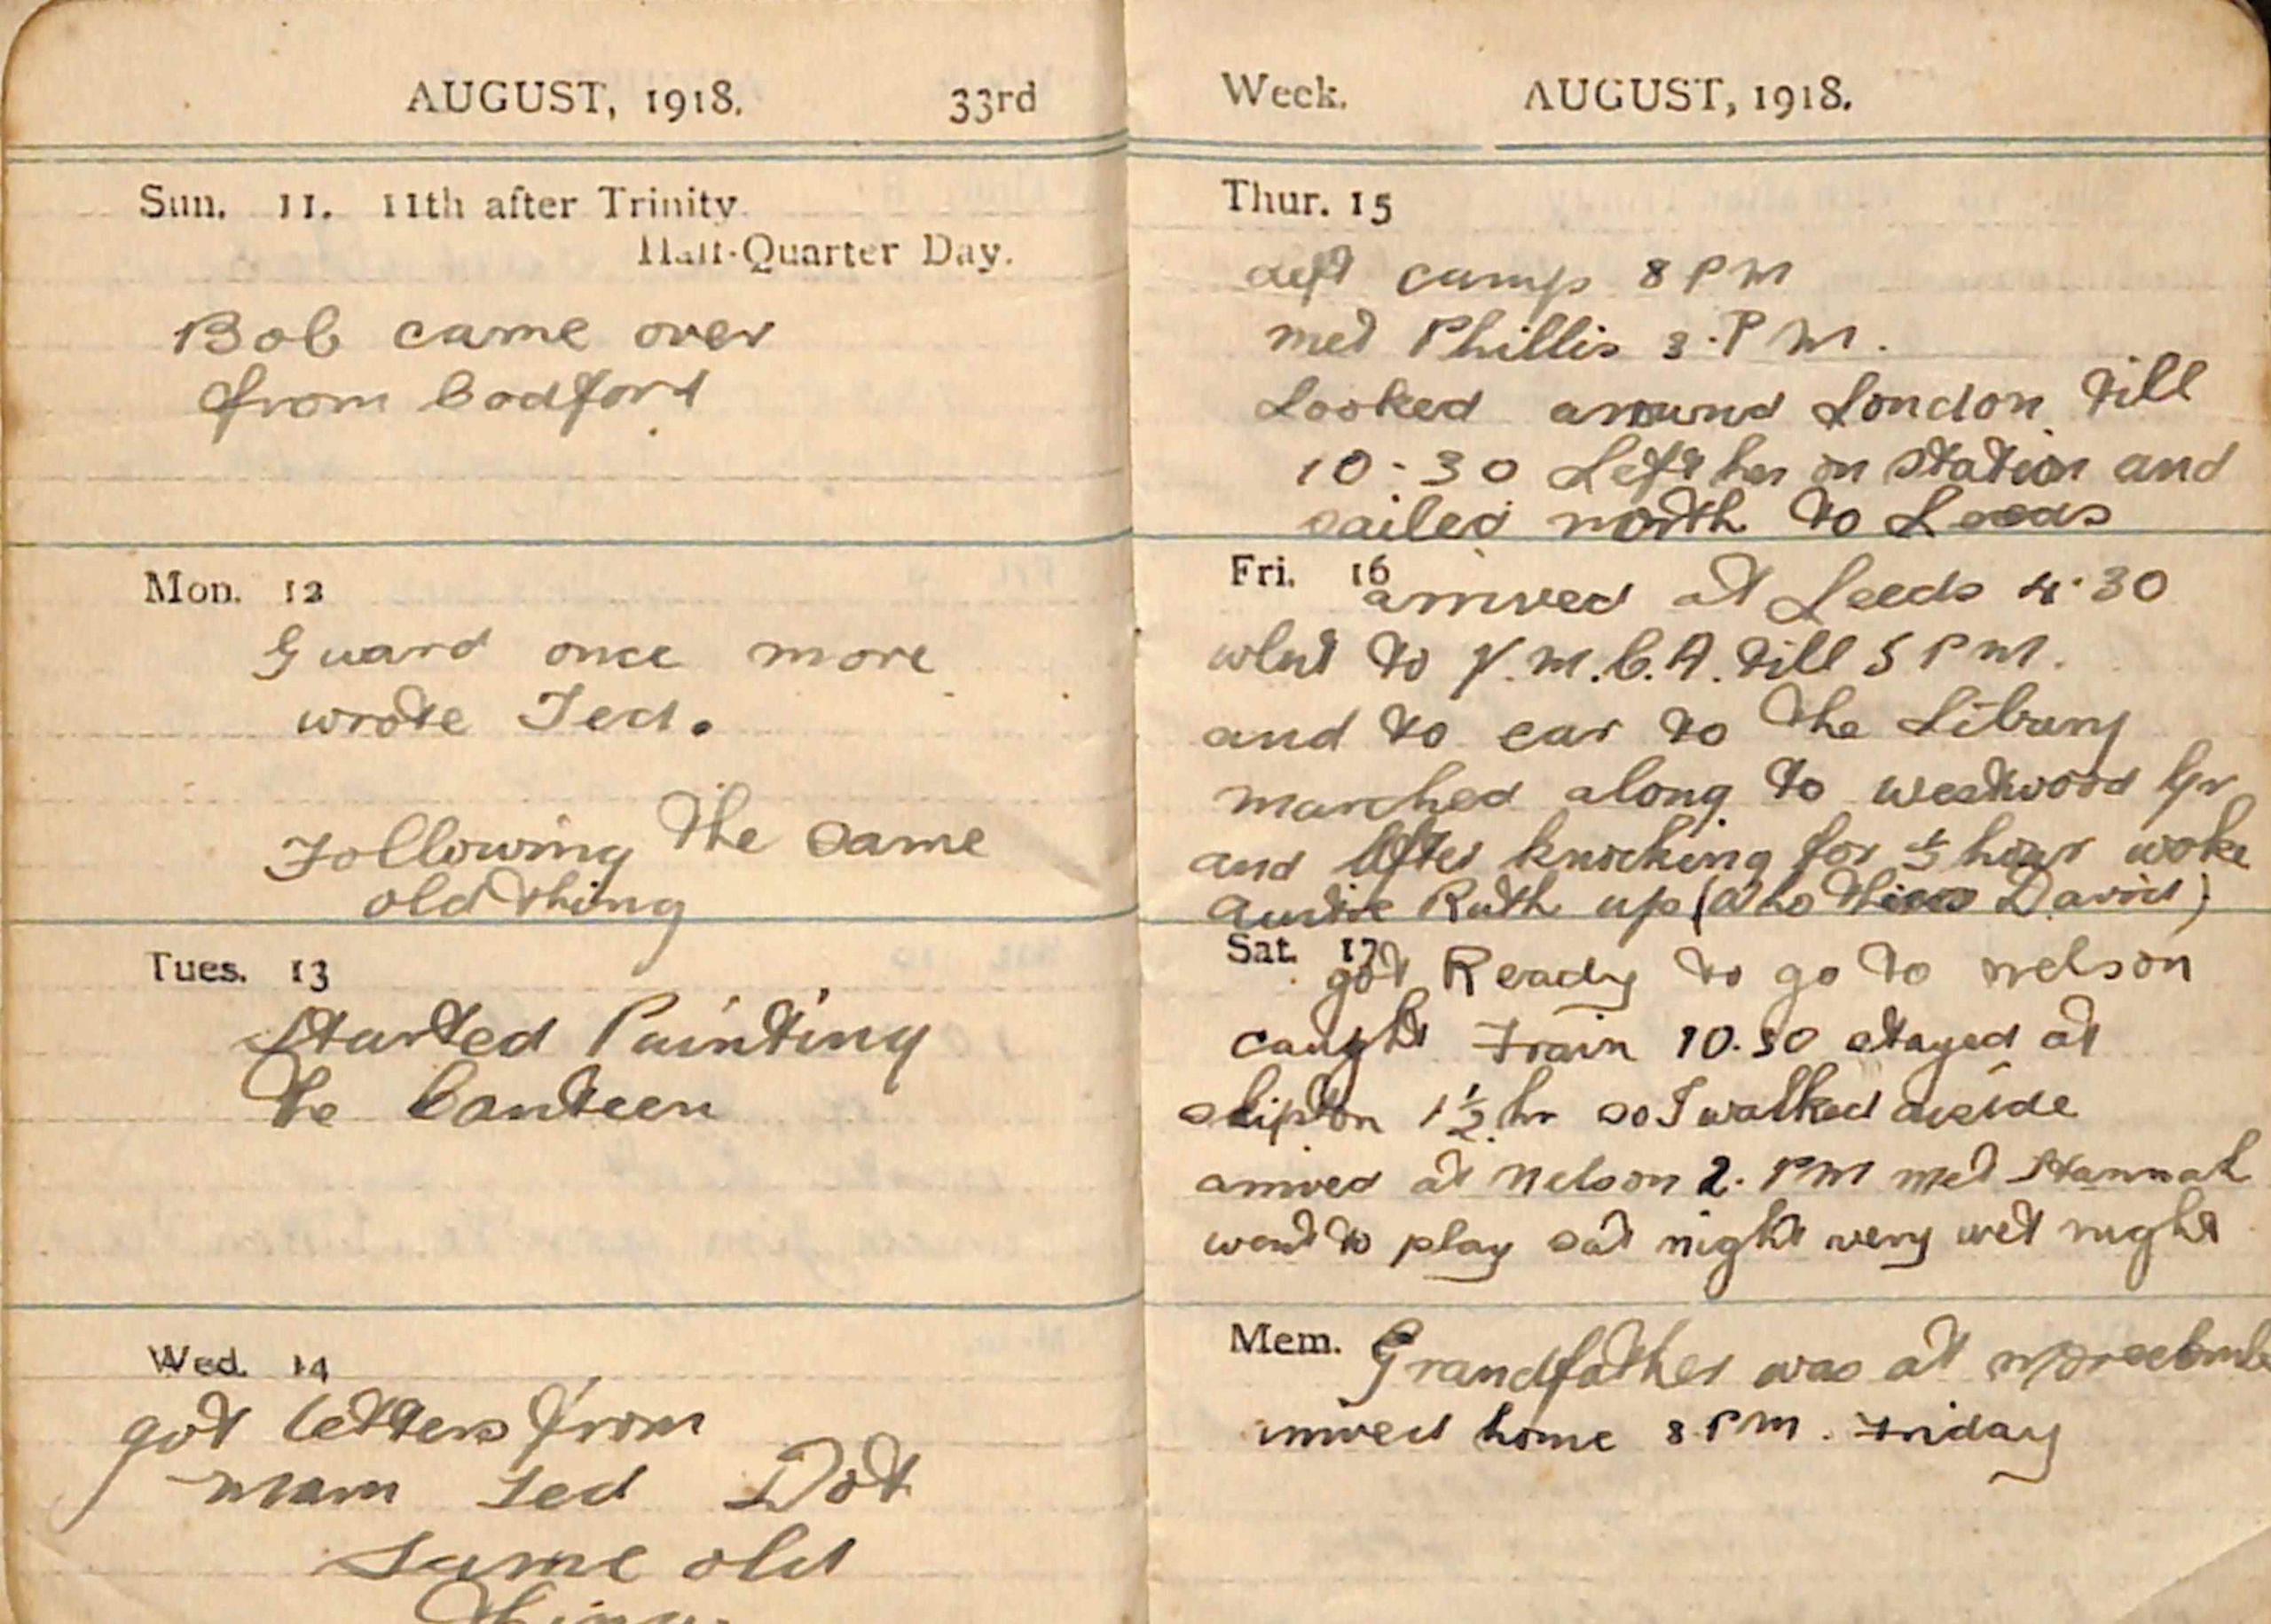 AUGUST, 1918. 33rd
Sun. 11. 11th after Trinity
Half-Quarter Day.
Bob came over
from Codford
Mon. 12
Guard once more
wrote Ted.
Following the same
old thing
Tues. 13
Started Painting
the Canteen
Wed. 14
got letters from
mam Ted Dot
same old
thing
Week. AUGUST, 1918.
Thur. 15
left camp 8 PM
met Phillis 8.PM.
Looked around London till
10-30 Left her on station and
sailed north to Leeds
Fri. 16
arrived at Leeds 4.30
went to Y.M.C.A. till 5 PM.
and to car to the Library
marched along to westwood Gr
and After knocking for ½ hour woke
Auntie Ruth up (also David)
Sat. 17
got Ready to go to nelson
caught Train 10.30 stayed at
skipton 1½ hr so I walked aside
arrived at Nelson 2. PM met Hannah
went to play sat night very wet night
Mem. Grandfather was at morecambe
arrived home 8.PM. Friday